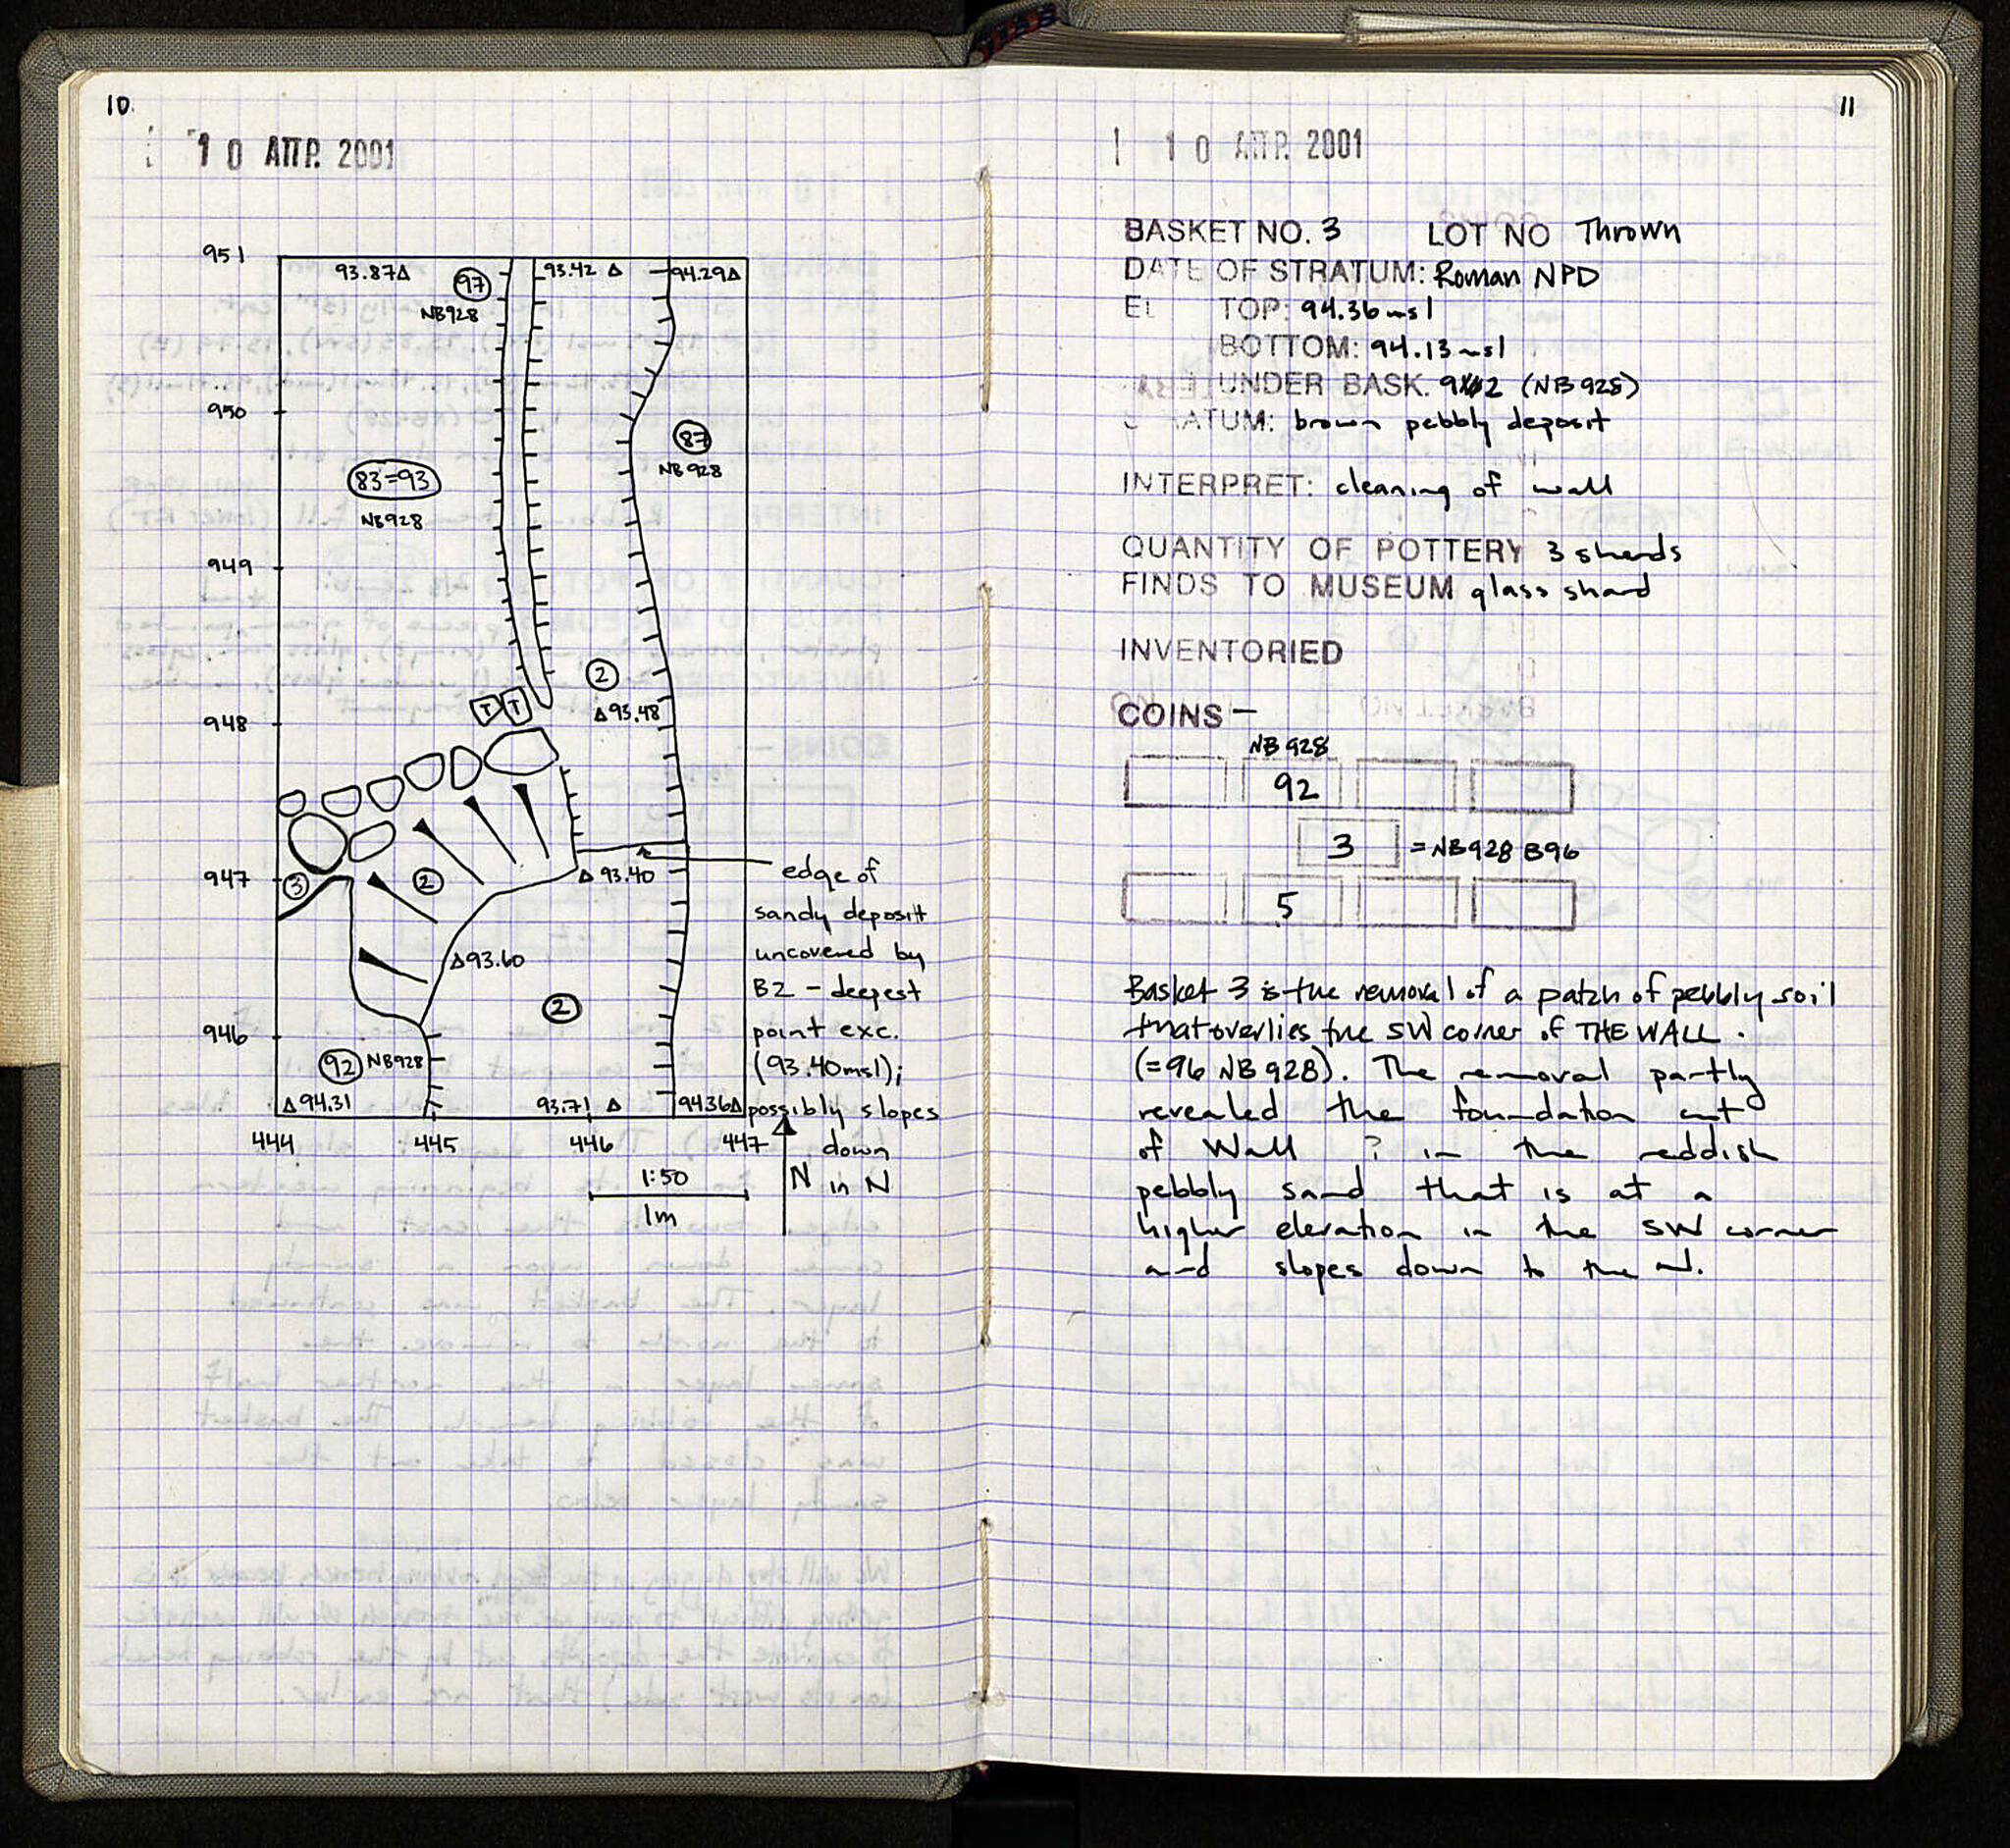 10
10 ΑΠΡ. 2001
951
93.87Δ
97
NB928
93.42 Δ
94.29Δ
950
87
NB928
83=93
NB928
949
2
Δ93.48
T T
948
947
3
2
Δ 93.40
edge of
sandy deposit
uncovered by
B2 - deepest
point exc.
(93.40msl);
possibly slopes
down
in N
Δ93.60
2
946
92 NB928
Δ94.31
93.71 Δ
94.36Δ
444 445 446 447
1:50
1m
N
11
10 ΑΠΡ. 2001
BASKET NO. 3 LOT NO Thrown
DATE OF STRATUM: Roman NPD
EL TOP: 94.36msl
BOTTOM: 94.13msl
UNDER BASK. 92 (NB928)
ATUM: brown pebbly deposit
INTERPRET: cleaning of wall
QUANTITY OF POTTERY 3 sherds
FINDS TO MUSEUM glass shard
INVENTORIED
COINS —
NB928
92
3 = NB928 B96
5
Basket 3 is the removal of a patch of pebbly soil
that overlies the SW corner of THE WALL.
(=96 NB928). The removal partly
revealed the foundation cut
of Wall ? in the reddish
pebbly sand that is at a
higher elevation in the SW corner
and slopes down to the N.